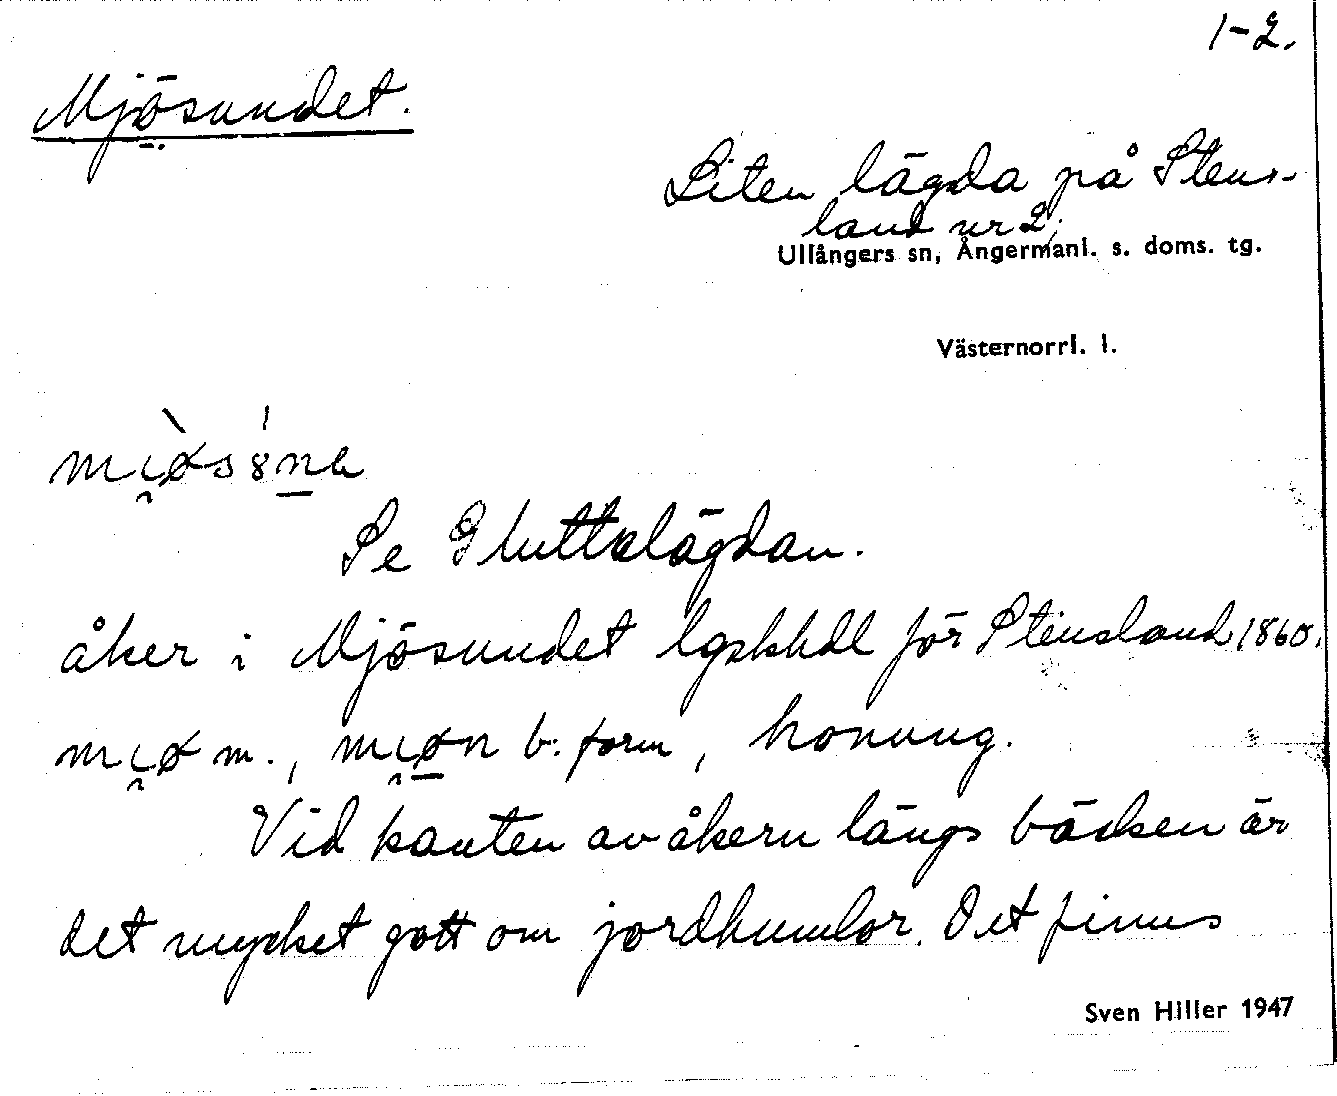 1-2.
Mjösundet.
Liten lägda på Stens-
land nr 2.
Ullångers sn, Ångermanl. s. doms. tg.
Västernorrl. l.
Se Gluttlägdan.
åker i Mjösundet lgskhdl för Stensland 1860.
m., b. form, honung.
Vid kanten av åkern längs bäcken är
det mycket gott om jordhumlor. Det finns
Sven Hiller 1947